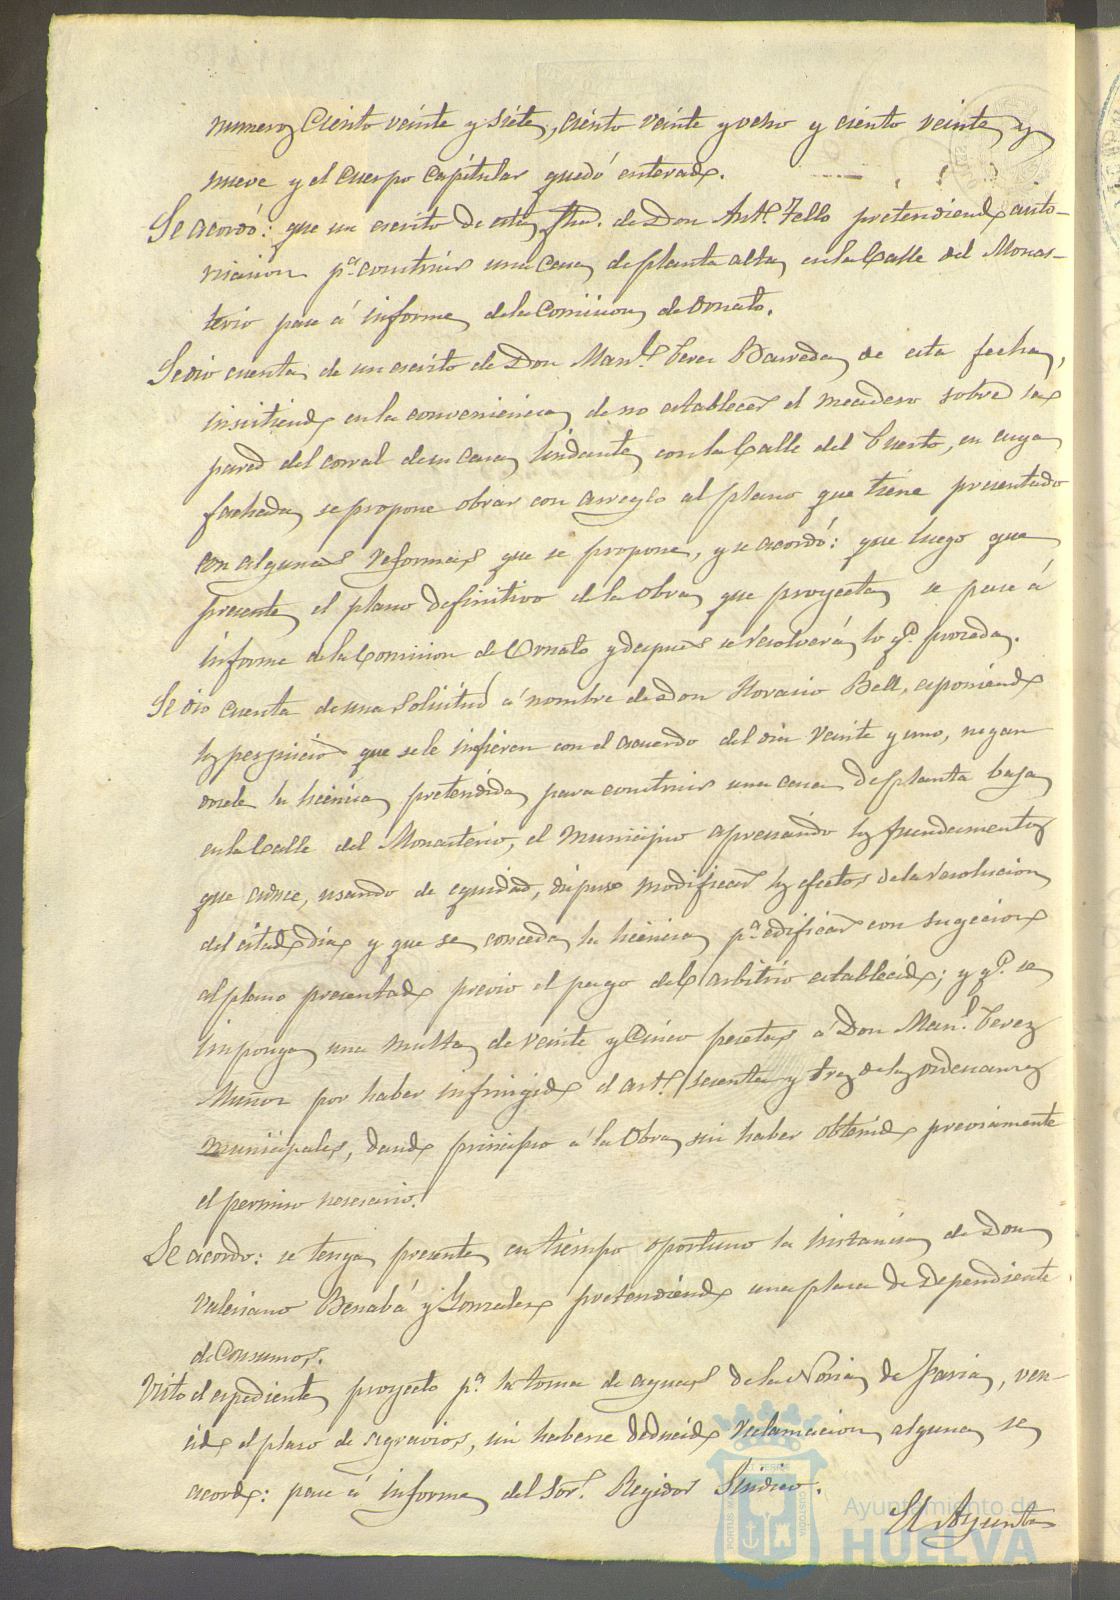 numeros Ciento veinte y siete, ciento veinte y ocho y ciento veinte y
nueve y el cuerpo capitular quedó enterado.
Se acordó: que un escrito de esta fha. de Don Antº. Tello pretendiendo auto-
risacion pª construir una casa de planta alta en la Calle del Monas-
terio pase á informe de la Comision de Ornato.
Se dio cuenta de un escrito de Don Manl. Perez Barreda de esta fecha,
insistiendo en la conveniencia de no establecer el meadero sobre la
pared del corral de su casa lindante con la Calle del Puerto, en cuya
fachada se propone obrar con arreglo al plano que tiene presentado
con algunas reformas que se propone, y se acordó: que luego que
presente el plano definitivo de la obra que proyecta se pase á
informe de la Comision de Ornato y despues se resolverá lo qe. proceda.
Se dio cuenta de una solicitud á nombre de Don Horacio Bell, esponiendo
los perjuicios que se le infieren con el acuerdo del dia veinte y uno, negan
dosele la licencia pretendida para construir una casa de planta baja
en la Calle del Monasterio, el Municipio apreciando los fundamentos
que aduce, usando de equidad, dispuso modificar los efectos de la resolucion
del citado dia y que se conceda la licencia pª edificar con sugecion
al plano presentado previo el pago del arbitrio establecido; y qe. se
imponga una multa de veinte y Cinco pesetas á Don Manl. Perez
Muñoz por haber infringido el artº. sesenta y tres de las ordenanzas
municipales, dando principio á la Obra sin haber obtenido previamente
el permiso necesario.
Se acordo: se tenga presente en tiempo oportuno la instancia de Don
Valeriano Benabá y Gonzalez pretendiendo una plaza de Dependiente
de Consumos.
Visto el espediente proyecto pª. la toma de aguas de la Noria de , ven-
cido el plaso de agravios, sin haberse deducido reclamacion alguna se
acordo: pase á informe del Sor. Regidor Sindico.
El Ayunta
PORTUS MARIS ET TERRE CUSTODIA
Ayuntamiento de
HUELVA